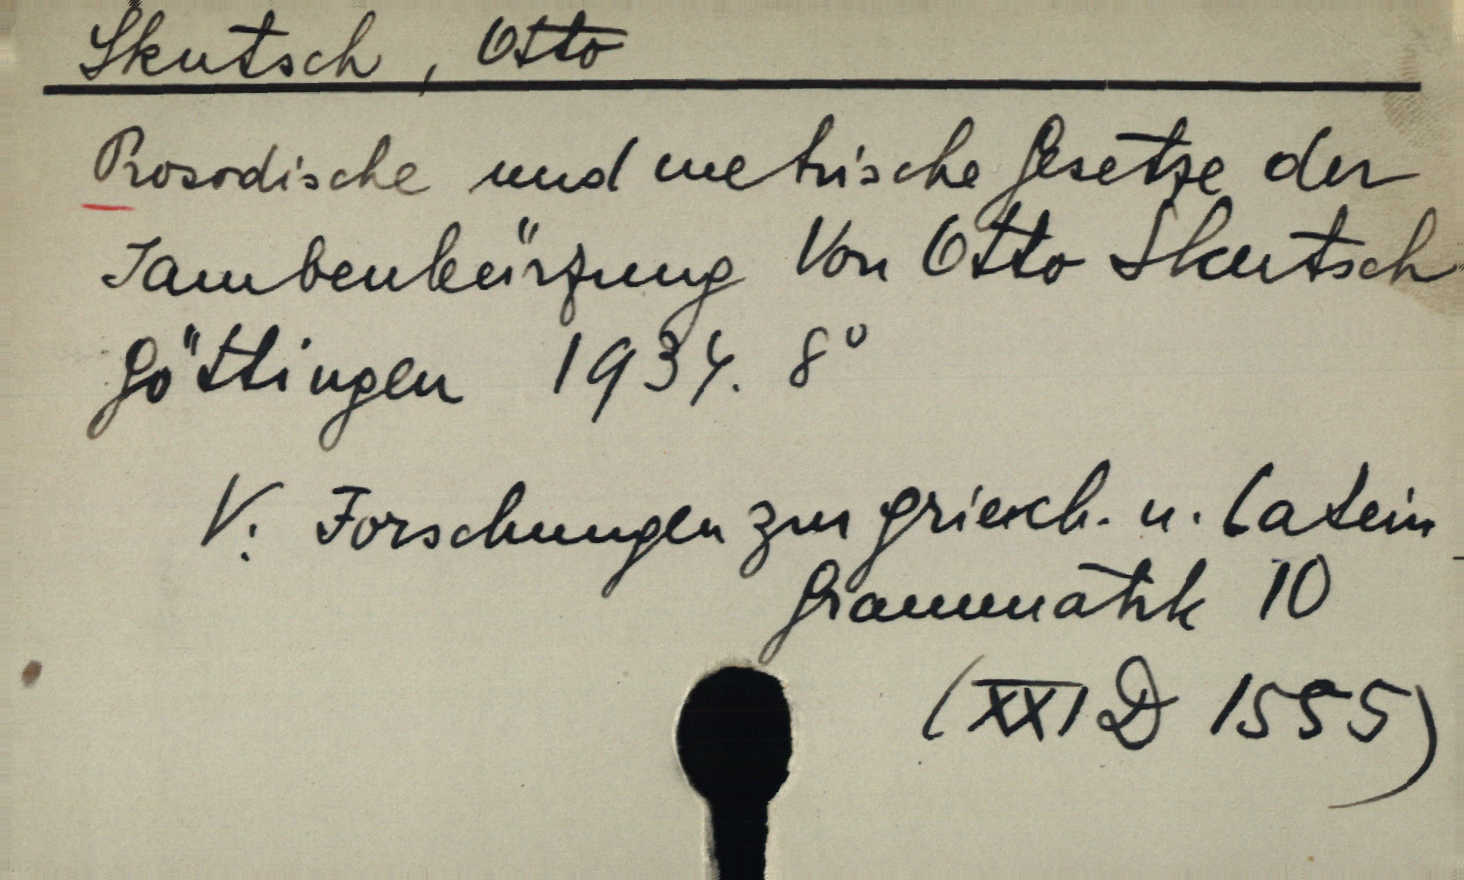 Skutsch, Otto
Prosodische und metrische Gesetze der
Iambenkürzung Von Otto Skutsch
Göttingen 1934. 8°
V: Forschungen zur griech. u. Latein
Grammatik 10
(XXI D 1555)